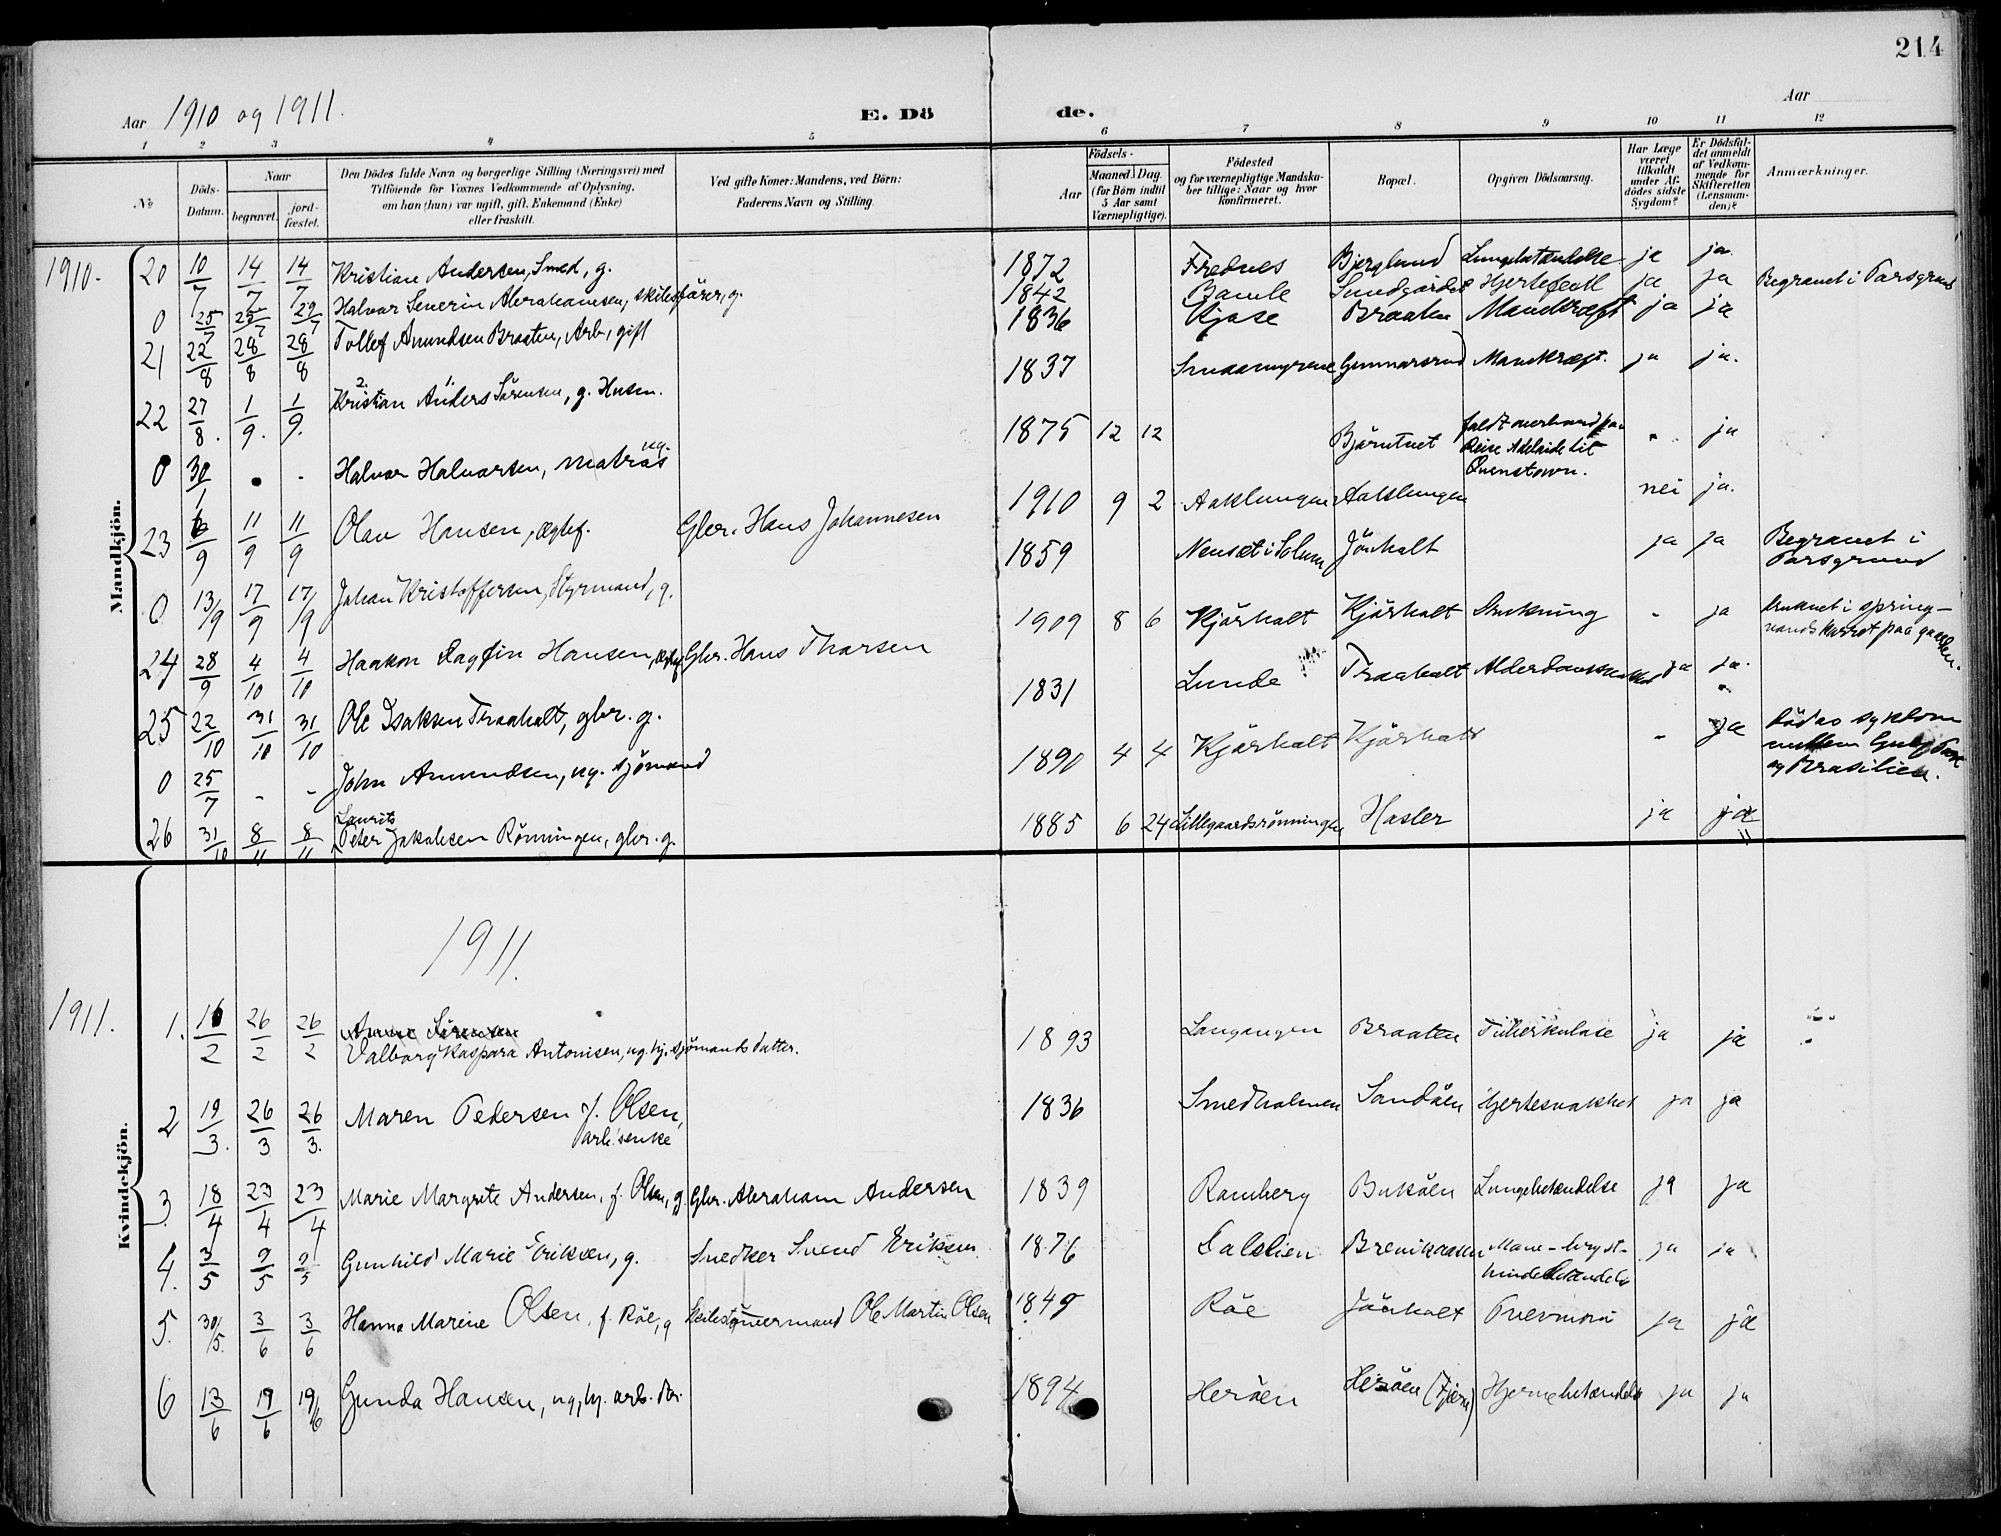 214
Aar 1910 og 1911.
E. Dö de.
Aar
1 2 3 4 5 6 7 8 9 10 11 12
No
Döds-Datum.
Naar
begravet.
jord-fæstet.
Den Dödes fulde Navn og borgerlige Stilling (Næringsvei) med
Tilföiende for Voxnes Vedkommende af Oplysning,
om han (hun) var ugift, gift, Enkemand (Enke)
eller fraskilt.
Ved gifte Koner: Mandens, ved Börn:
Faderens Navn og Stilling.
Födsels-
Aar
Maaned. Dag.
(for Börn indtil
5 Aar samt
Værnepligtige).
Födested
og for værnepligtige Mandska-
ber tillige: Naar og hvor
konfirmeret.
Bopæl.
Opgiven Dödsaarsag.
Har Læge
været
tilkaldt
under Af-
dödes sidste
Sygdom?
Er Dödsfal-
det anmeldt
af Vedkom-
mende for
Skifteretten
(Lensman-
den)?
Anmærkninger.
Mandkjön.
1910- 20 10/7 14/7 14/7 Kristian Andersen, Smed, g. 1872 Frednes Bjerglund Lungebetændelse ja ja
0 25/7 29/7 29/7 Halvor Severin Abrahamsen, skibsfører, g. 1842 Bamle Sundgårdet Hjertefeil ja ja Begravet i Porsgrund
21 22/8 28/8 28/8 Tollef Amundsen Braaten, Arb, gift 1836 Kjose Braaten Mavekræft ja ja
22 27/8. 1/9. 1/9. Kristian Anders Sörensen, g. Husm. 1837 Gunnarsrud Mavekræft. ja ja.
0 30/1 . . Halvor Halvorsen, matros ug. 1875 12 12 Bjørntvet faldt overbord paa
Reise Adelaide til
Qvenstown. " ja
23 6/9 11/9 11/9 Olav Hansen, ægtef. Gbr. Hans Johannesen 1910 9 2 Aaklungen Aaklungen nei ja.
0 13/9 17/9 17/9 Johan Kristoffersen, Styrmand, g. 1859 Nenset i Solum Jönholt ja ja Begravet i
Porsgrund
24 28/9 4/10 4/10 Haakon Dagfin Hansen, ægtef Gbr. Hans Thorsen 1909 8 6 Kjørholt Kjørholt Drukning - ja druknet i spring-
vandskarret paa gaarden.
25 22/10 31/10 31/10 Ole Isaksen Traaholt, gbr. g. 1831 Lunde Traaholt Alderdomssvakhet ja ja.
0 25/7 - - John Amundsen, ug. sjømand 1890 4 4 Kjørholt Kjørholt - ja Død av sykdom
mellem Port
og Brasilien.
26 31/10 8/11 8/11 Laurits
Peter Jakobsen Rønningen, gbr. g. 1885 6 24 Lillegaardsrønningen Hasler ja ja
Kvindekjön.
1911.
1911. 1. 16/2 26/2 26/2 Anne Sörensen
Valborg Kaspara Antonisen, ug. hj. sjømands datter. 1893 Langangen Braaten Tuberkulose ja ja
2 19/3. 26/3 26/3. Maren Pedersen f. Olsen,
arb.'s enke 1836 Smedholmen Sandøen Hjertesvakhet ja ja
3 18/4 23/4 23/4 Marie Margrete Andersen, f. Olsen, g. Gbr. Abraham Andersen 1839 Ramberg Buksøen Lungebetændelse ja ja
4. 3/5 9/5 9/5 Gunhild Marie Eriksen, g. Snedker Svend Eriksen 1876 Dalslien Brevikaasen Mave-bryst-
hindebetændelse ja ja
5. 30/5. 3/6 3/6 Hanna Marine Olsen, f. Röe, g Skibstømmermand Ole Martin Olsen 1849 Röe Jönholt Pnevmoni ja ja
6 13/6 19/6 19/6 Gunda Hansen, ug, hj. arb. dtr. 1894 Herøen Herøen (Fjære) Hjernebetændelse ja ja